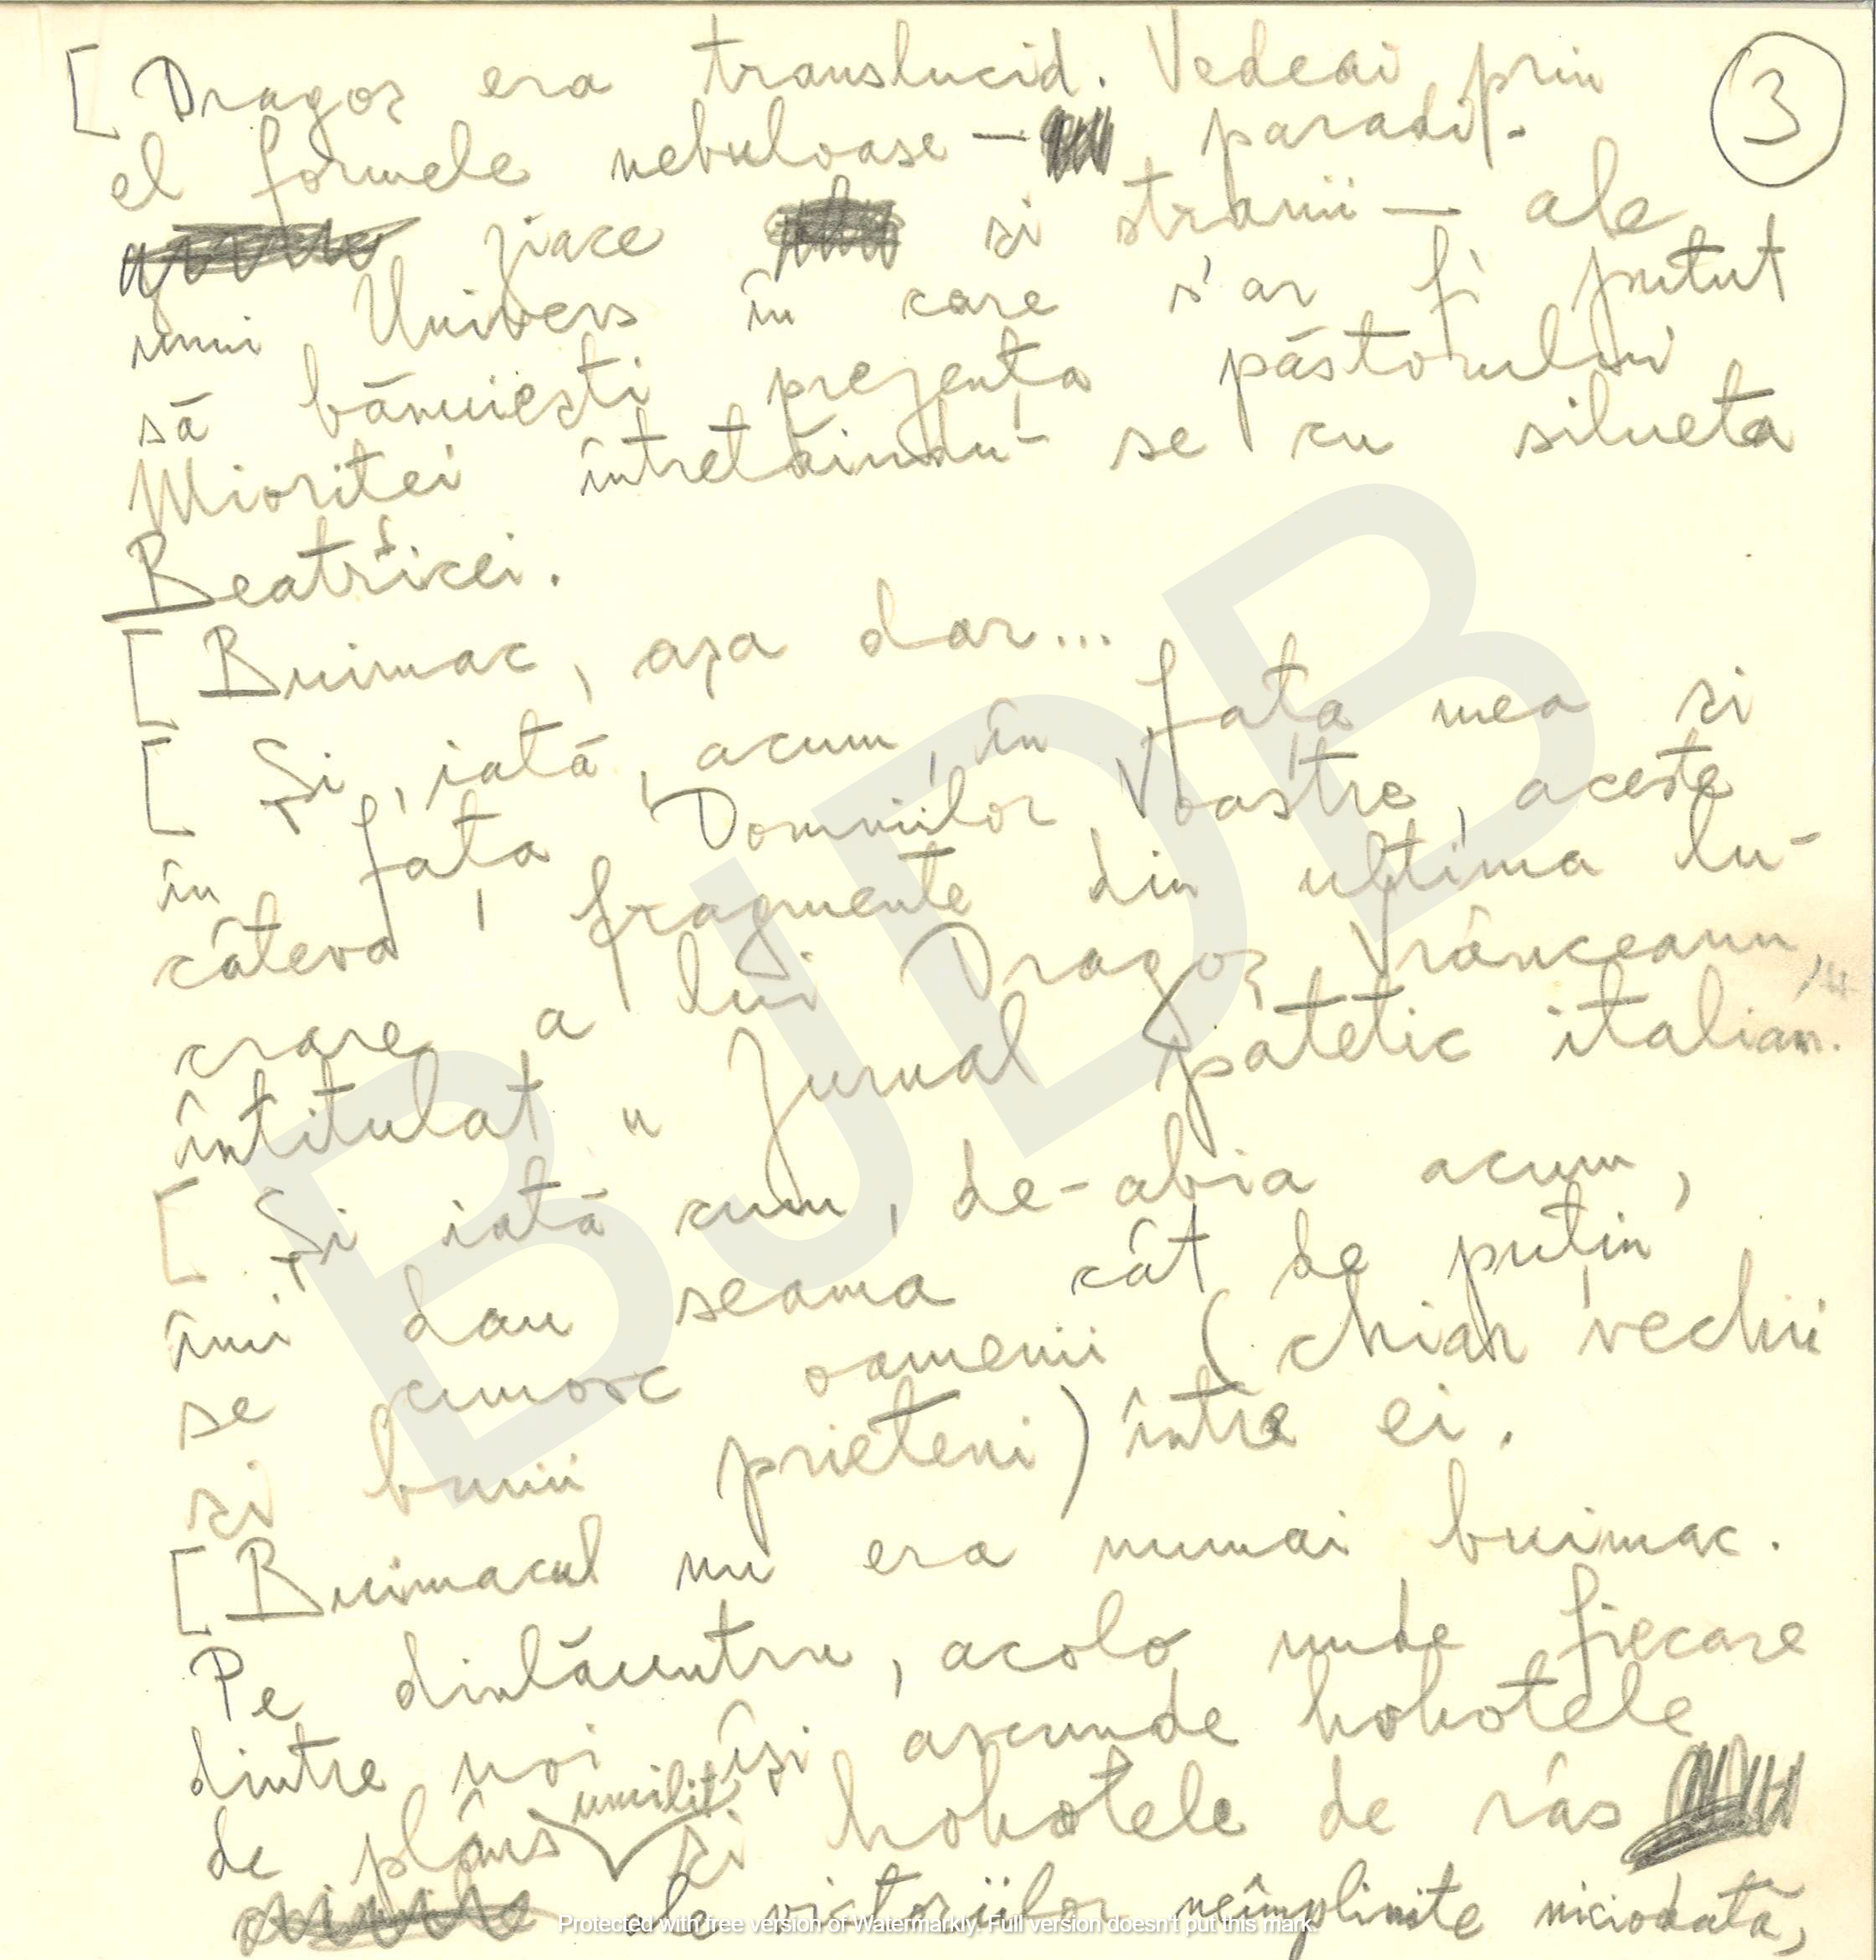 [ Dragoș era translucid. Vedeai prin
3
el formele nebuloase — paradi-
ziace și stranii — ale
unui Univers în care s'ar fi putut
să bănuiești prezența păstorului
Mioriței întretăindu-se cu silueta
Beatricei.
[ Buimac, așa dar...
[ Și, iată, acum, în fața mea și
în fața Domniilor Voastre, aceste
câteva fragmente din ultima lu-
crare a lui Dragoș Vrânceanu,
intitulat „Jurnal patetic italian."
[ Și iată cum, de-abia acum,
îmi dau seama cât de puțin
se cunosc oamenii (chiar vechii
și bunii prieteni) între ei.
[ Buimacul nu era numai buimac.
Pe dinlăuntru, acolo unde fiecare
dintre noi își ascunde hohotele
umilit
de plâns și hohotele de râs
ale victoriilor neîmplinite niciodată,
BJDB
Protected with free version of Watermarkly. Full version doesn't put this mark.